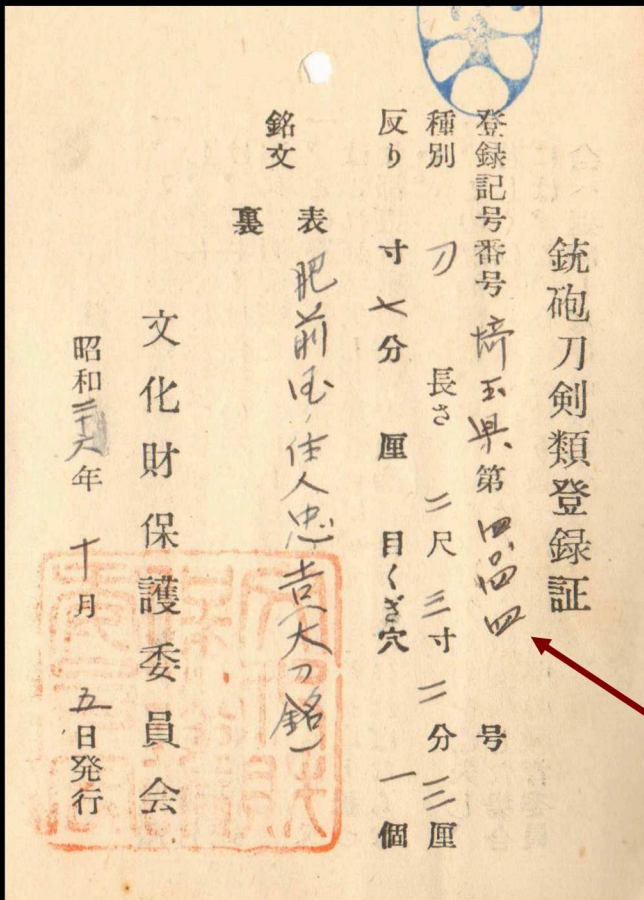 銃砲刀剣類登録証
登録記号番号 埼玉県第 号
種別 刀 長さ 二尺三寸二分三厘
反り 寸七分 厘 目くぎ穴 一個
銘文 表 肥前国住人忠吉(大刀銘)
裏
文化財保護委員会
昭和二十六年十月五日発行